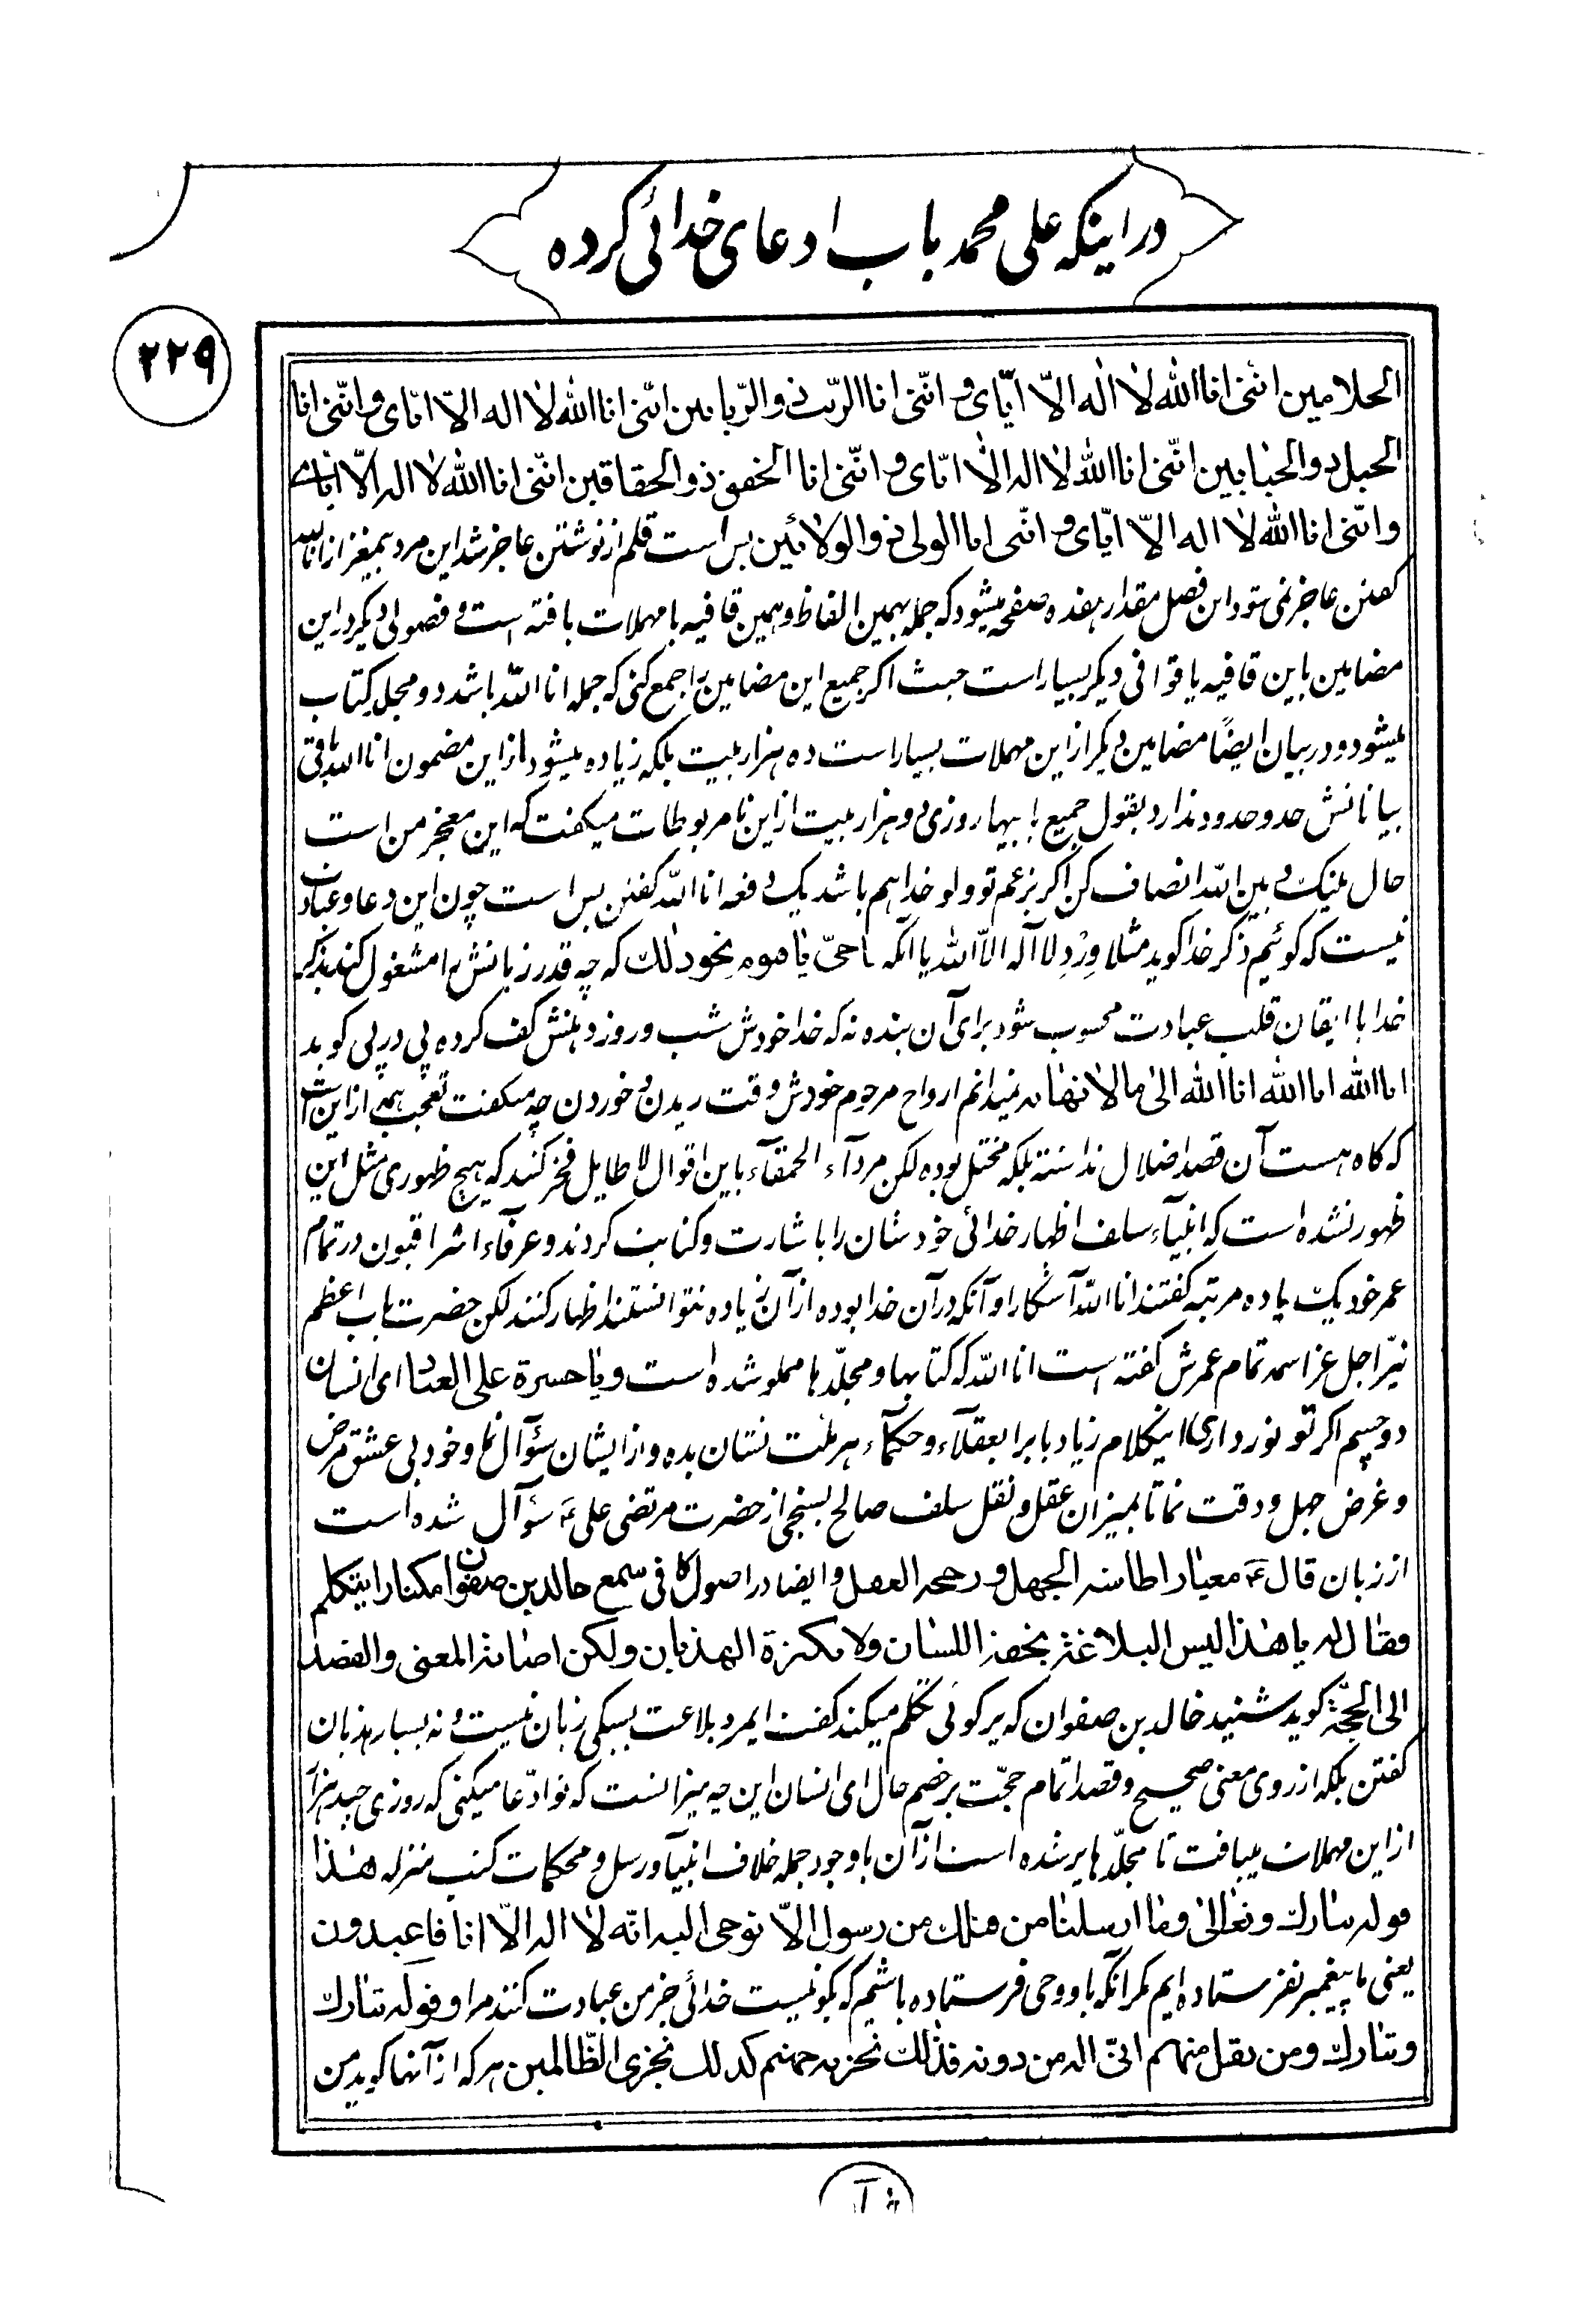 در اینکه علی محمد باب ادعای خدائی کرده
۲۲۹
الحلامین اننی انا الله لا اله الا ایای و اننی انا الرب ذو الربابین اننی انا الله لا اله الا ایای و اننی انا
الحبل ذو الحبابین اننی انا الله لا اله الا ایای و اننی انا الحقق ذو الحقاقین اننی انا الله لا اله الا ایای
و اننی انا الله لا اله الا ایای و اننی انا الولی ذو الولائین بس است قلم از نوشتن عاجز شد این مرد بیمغز از انا الله
کفتن عاجز نمی شود این فصل مقدار هفده صفحه میشود که جمله بهمین الفاظ و همین قافیه با مهملات بافته است و فصول دیکر در این
مضامین باین قافیه یا قوافی دیکر بسیار است حیث اکر جمیع این مضامین را جمع کنی که جمله انا الله باشد دو مجلد کتاب
میشود و در بیان ایضاً مضامین دیکر از این مهملات بسیار است ده هزار بیت بلکه زیاده میشود از این مضمون انا الله باقی
بیاناتش حد و حدود ندارد بقول جمیع بابیها روزی دو هزار بیت از این نامربوطات میکفت که این معجز من است
حال بینک و بین الله انصاف کن اکر بزعم تو ولو خدا هم باشد یک دفعه انا الله کفتن بس است چون این دعا و عبادت
نیست که کوئیم ذکر خدا کوید مثلا وِرْدِ لا اله الا الله یا آنکه یا حیّ یا هو و نحو ذلک که چه قدر زبانش را مشغول کند بذکر
خدا با ایقان قلب عبادت محسوب شود برای آن بنده نه که خدا خودش شب و روز دهنش کف کرده پی در پی کوید
انا الله انا الله انا الله الی مالا نهایه نمیدانم ارواح مرحوم خودش وقت ریدن و خوردن چه میکفت تعجب همه از این است
که کاه هست آن قصد اضلال نداشته بلکه مختل بوده لکن مردآء الحمقآء باین اقوال لا طایل فخر کنند که هیچ ظهوری مثل این
ظهور نشده است که انبیآء سلف اظهار خدائی خودشان را باشارت و کنایت کردند و عرفآء اشراقیون در تمام
عمر خود یک یا ده مرتبه کفتند انا الله آشکارا و آنکه در آن خدا بوده از آن زیاده نتوانستند اظهار کنند لکن حضرت باب اعظم
نیّر اجل عز اسمه تمام عمرش کفته است انا الله که کتابها و مجلّدها مملو شده است و یا حسرة علی العباد ای انسان
دو چشم اکر تو نور داری اینکلام زیاد بابرا بعقلآء و حکمآء هر ملت نشان بده و از ایشان سؤال نما و خود بی عشق مرض
و غرض جهل و دقت نما تا بمیزان عقل و نقل سلف صالح بسنجی از حضرت مرتضی علی ع سؤال شده است
از زبان قال ع معیار اطاشه الجهل و رجحه العقل و ایضا در اصول کا فی سمع خالد بن صفوان مکثارا یتکلم
فقال له یا هذا لیس البلاغة بخفة اللسان ولا بکثرة الهذیان ولکن اصابة المعنی والقصد
الی الحجّة کوید شنید خالد بن صفوان که پر کوئی تکلم میکند کفت ایمرد بلاعت بسبکی زبان نیست و نه بسیار هذیان
کفتن بلکه از روی معنی صحیح و قصد اتمام حجّت بر خصم حال ای انسان این چه میزانست که تو ادّعا میکنی که روزی چند هزار
از این مهملات میبافت تا مجلّدها پر شده است از آن با وجود جمله خلاف انبیآء و رسل و محکمات کتب منزله هذا
قوله تبارک و تعالی وما ارسلنا من قبلک من رسول الّا نوحی الیه انّه لا اله الّا انا فاعبدون
یعنی ما پیغمبر نفرستاده ایم مکر آنکه باو وحی فرستاده باشیم که بکو نیست خدائی جز من عبادت کنند مرا و قوله تبارک
و تبارک ومن یقل منهم انّی اله من دونه فذلک نجزیه جهنم کذلک نجزی الظّالمین هر که از آنها کوید من